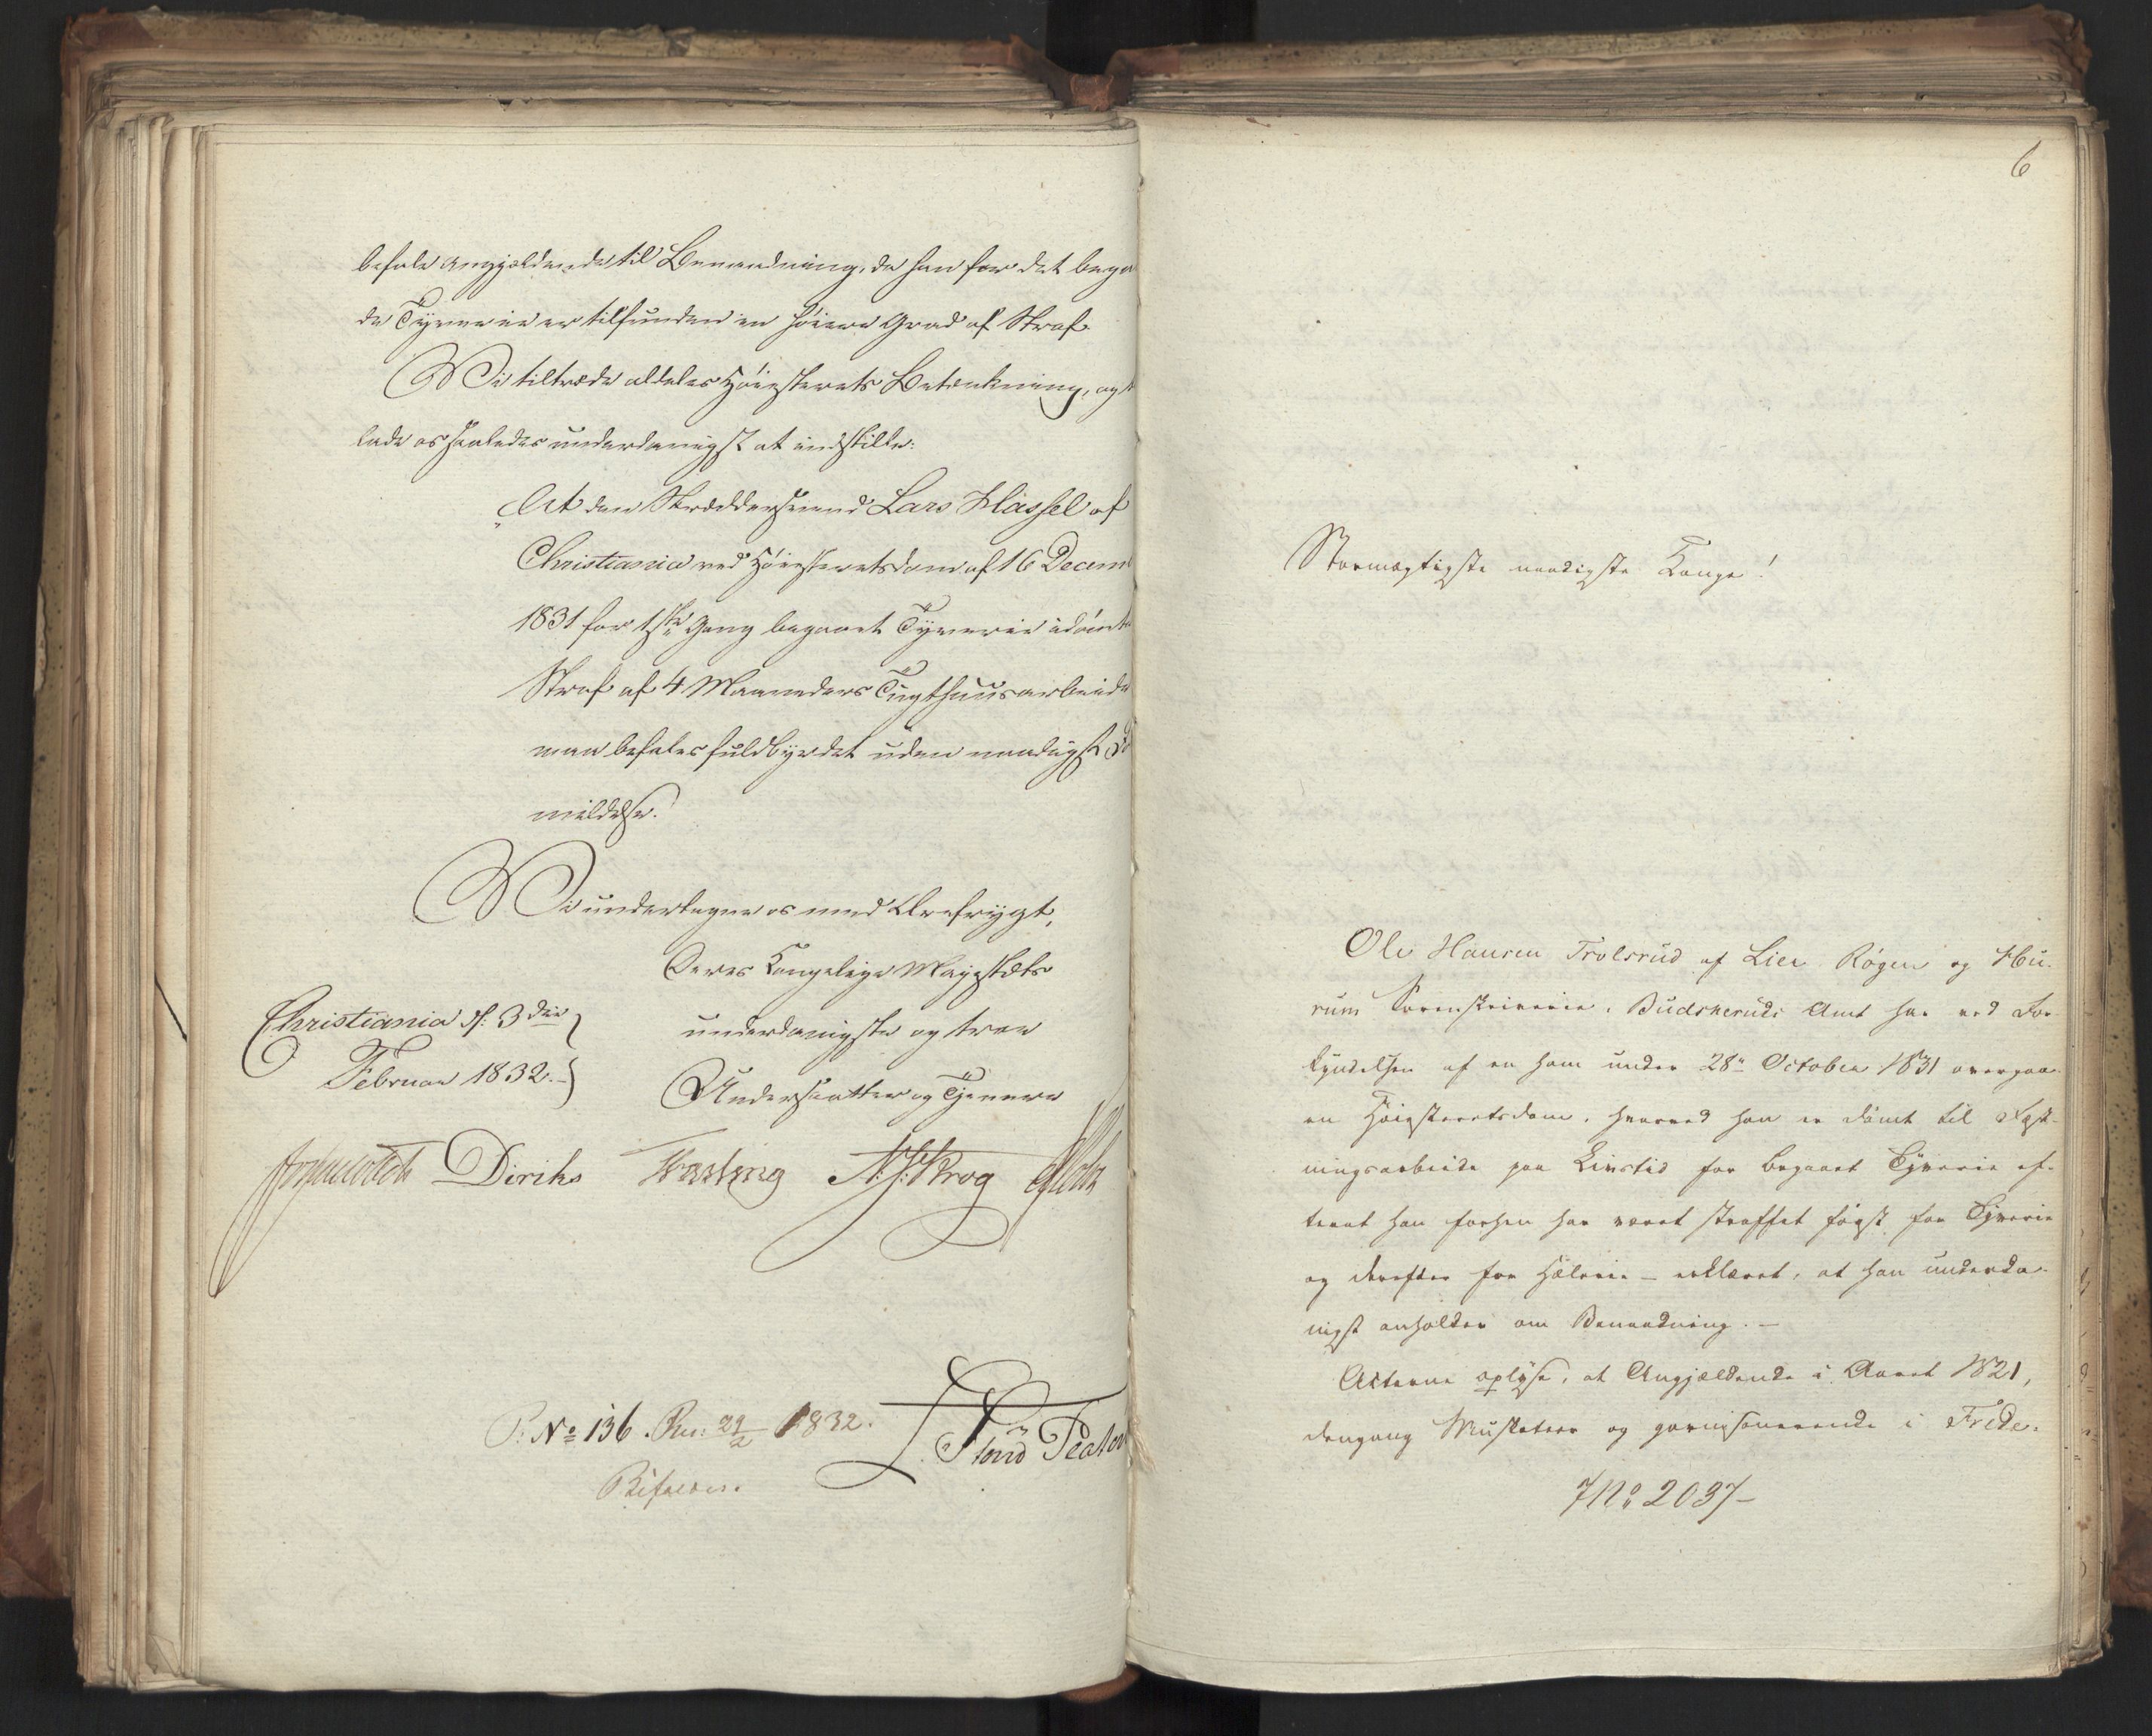 befale angjældende til Benaadning, da han for det begaa
de Tyverie er tilfunden en høiere Grad af Straf.
Vi tiltræde aldeles Høiesterets Betænkning, og
lade os saaledes underdanigst at indstille:
„At den Skrædersvend Lars Hassel af
Christiania ved Høiesteretsdom af 16 Decemb
1831 for 1ste Gang begaaet Tyverie idømte
Straf af 4 Maaneders Tugthuusarbeide
maa befales fuldbyrdet uden naadigst For
mildelse.
Vi undertegne os med Ærefrygt,
Deres Kongelige Majestæts
underdanigste og troe
Undersaatter og Tjenere
Christiania d: 3die
Februar 1832.
Diriks
P: No 136. Res: 21/2 1832.
Bifaldes.
6
Stormægtigste naadigste Konge!
Ole Hansen Trolsrud af Lier Røgen og Hu-
rum Sorenskriverie, Budskeruds Amt har ved For-
kyndelsen af en ham under 28de October 1831 overgaa-
en Høiesteretsdom, hvorved han er dømt til Fæst-
ningsarbeide paa Livstid for begaaet Tyverie ef-
terat han forhen har været straffet først for Tyverie
og derefter for Hælerie - erklæret, at han underda-
nigst anholder om Benaadning. -
Acterne oplyse, at Angjældende i Aaret 1821,
dengang Musketeer og garnisonerende i Frede-
7No 2037-